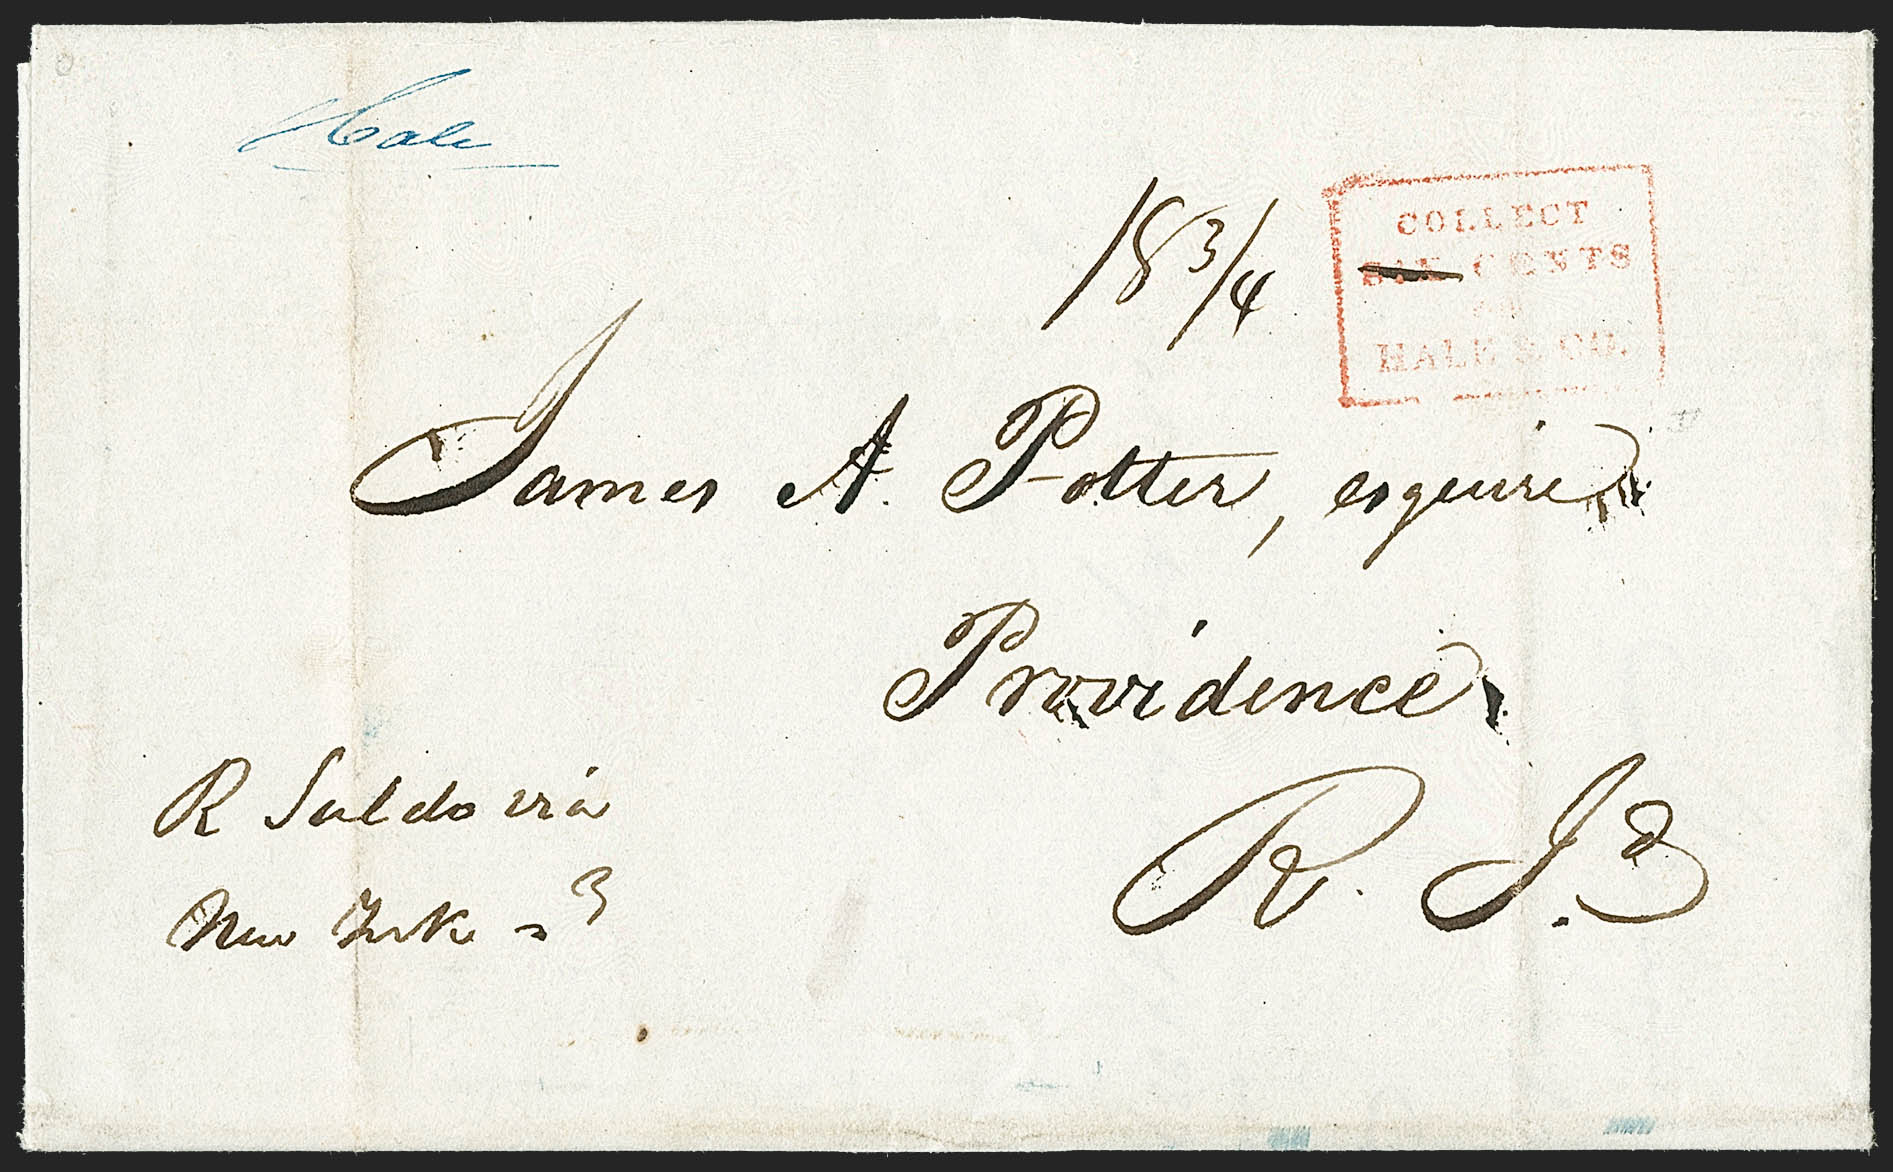 Hale
18 3/4
COLLECT
SIX CENTS
FOR
HALE & CO.
James A. Potter, esquire,
Providence,
R. I.d
R Suldo via
New York